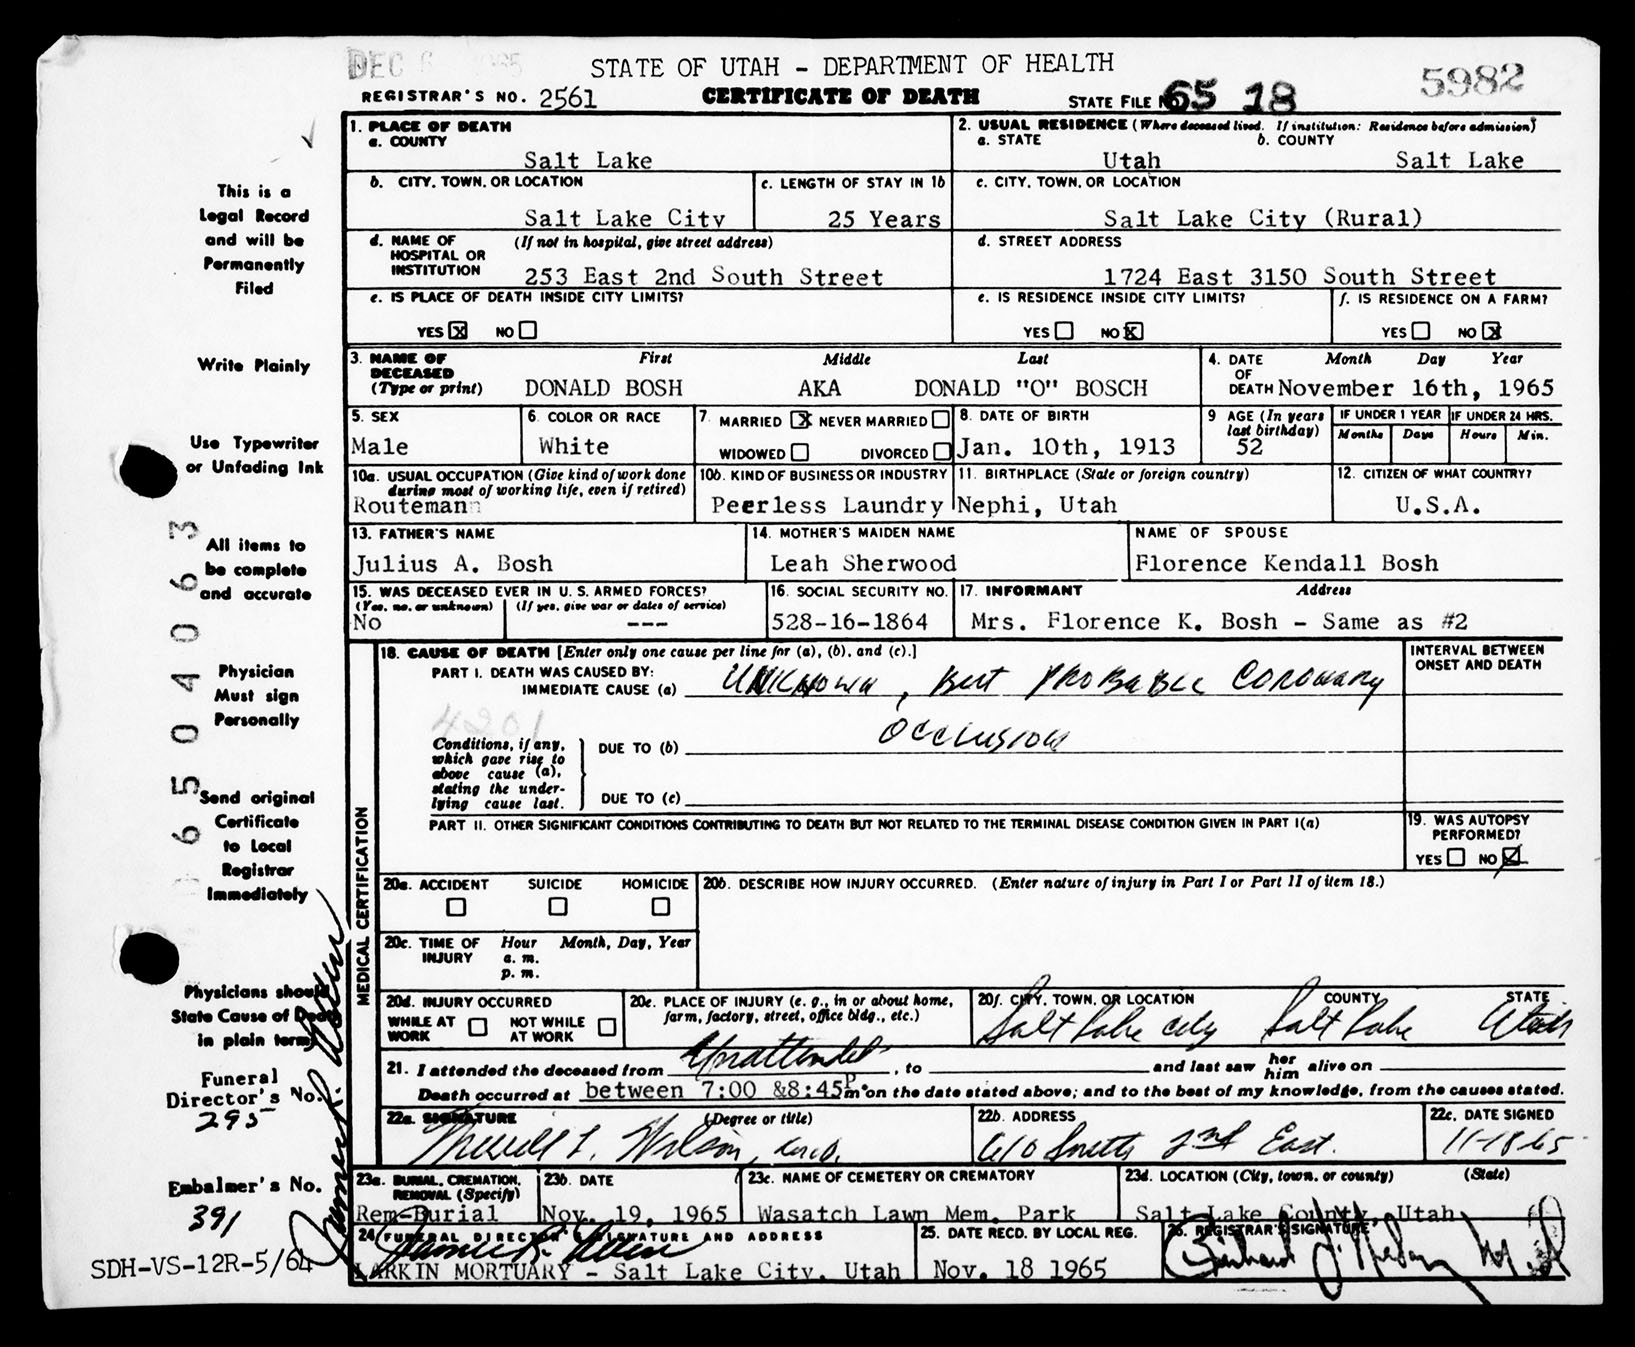 DEC 6 1965
STATE OF UTAH - DEPARTMENT OF HEALTH
5982
REGISTRAR'S NO. 2561 CERTIFICATE OF DEATH STATE FILE NO. 65 18
1. PLACE OF DEATH
a. COUNTY
Salt Lake
2. USUAL RESIDENCE (Where deceased lived. If institution: Residence before admission)
a. STATE b. COUNTY
Utah Salt Lake
b. CITY, TOWN, OR LOCATION
Salt Lake City
c. LENGTH OF STAY IN 1b
25 Years
c. CITY, TOWN, OR LOCATION
Salt Lake City (Rural)
d. NAME OF HOSPITAL OR INSTITUTION (If not in hospital, give street address)
253 East 2nd South Street
d. STREET ADDRESS
1724 East 3150 South Street
e. IS PLACE OF DEATH INSIDE CITY LIMITS?
YES X NO
e. IS RESIDENCE INSIDE CITY LIMITS?
YES NO X
f. IS RESIDENCE ON A FARM?
YES NO X
3. NAME OF DECEASED (Type or print) First Middle Last
DONALD BOSH AKA DONALD "O" BOSCH
4. DATE OF DEATH Month Day Year
November 16th, 1965
5. SEX
Male
6. COLOR OR RACE
White
7. MARRIED X NEVER MARRIED
WIDOWED DIVORCED
8. DATE OF BIRTH
Jan. 10th, 1913
9 AGE (In years last birthday)
52
IF UNDER 1 YEAR IF UNDER 24 HRS.
Months Days Hours Min.
10a. USUAL OCCUPATION (Give kind of work done during most of working life, even if retired)
Routemann
10b. KIND OF BUSINESS OR INDUSTRY
Peerless Laundry
11. BIRTHPLACE (State or foreign country)
Nephi, Utah
12. CITIZEN OF WHAT COUNTRY?
U.S.A.
13. FATHER'S NAME
Julius A. Bosh
14. MOTHER'S MAIDEN NAME
Leah Sherwood
NAME OF SPOUSE
Florence Kendall Bosh
15. WAS DECEASED EVER IN U. S. ARMED FORCES?
(Yes, no, or unknown) (If yes, give war or dates of service)
No ---
16. SOCIAL SECURITY NO.
528-16-1864
17. INFORMANT Address
Mrs. Florence K. Bosh - Same as #2
MEDICAL CERTIFICATION
18. CAUSE OF DEATH [Enter only one cause per line for (a), (b), and (c).]
INTERVAL BETWEEN ONSET AND DEATH
PART I. DEATH WAS CAUSED BY:
IMMEDIATE CAUSE (a) UNKNOWN, But PROBABLE CORONARY
4201
OCCLUSION
Conditions, if any, which gave rise to above cause (a), stating the underlying cause last.
DUE TO (b)
DUE TO (c)
PART II. OTHER SIGNIFICANT CONDITIONS CONTRIBUTING TO DEATH BUT NOT RELATED TO THE TERMINAL DISEASE CONDITION GIVEN IN PART I(a)
19. WAS AUTOPSY PERFORMED?
YES NO
20a. ACCIDENT SUICIDE HOMICIDE
20b. DESCRIBE HOW INJURY OCCURRED. (Enter nature of injury in Part I or Part II of item 18.)
20c. TIME OF INJURY Hour Month, Day, Year
a. m.
p. m.
20d. INJURY OCCURRED
WHILE AT WORK NOT WHILE AT WORK
20e. PLACE OF INJURY (e. g., in or about home, farm, factory, street, office bldg., etc.)
20f. CITY, TOWN, OR LOCATION COUNTY STATE
Salt Lake City Salt Lake Utah
21. I attended the deceased from Unattended, to and last saw her him alive on
Death occurred at between 7:00 &8:45P m on the date stated above; and to the best of my knowledge, from the causes stated.
22a. SIGNATURE (Degree or title)
Merrill L. Wilson, M.D.
22b. ADDRESS
610 South 2nd East.
22c. DATE SIGNED
11-18-65
23a. BURIAL, CREMATION, REMOVAL (Specify)
Rem-Burial
23b. DATE
Nov. 19, 1965
23c. NAME OF CEMETERY OR CREMATORY
Wasatch Lawn Mem. Park
23d. LOCATION (City, town, or county) (State)
Salt Lake County, Utah
24. FUNERAL DIRECTOR'S SIGNATURE AND ADDRESS
LARKIN MORTUARY - Salt Lake City, Utah
25. DATE RECD. BY LOCAL REG.
Nov. 18 1965
26. REGISTRAR'S SIGNATURE
This is a
Legal Record
and will be
Permanently
Filed
Write Plainly
Use Typewriter
or Unfading Ink
All items to
be complete
and accurate
Physician
Must sign
Personally
Send original
Certificate
to Local
Registrar
Immediately
Physicians should
State Cause of Death
in plain terms
Funeral
Director's No.
295
Embalmer's No.
391
SDH-VS-12R-5/64
65040 63